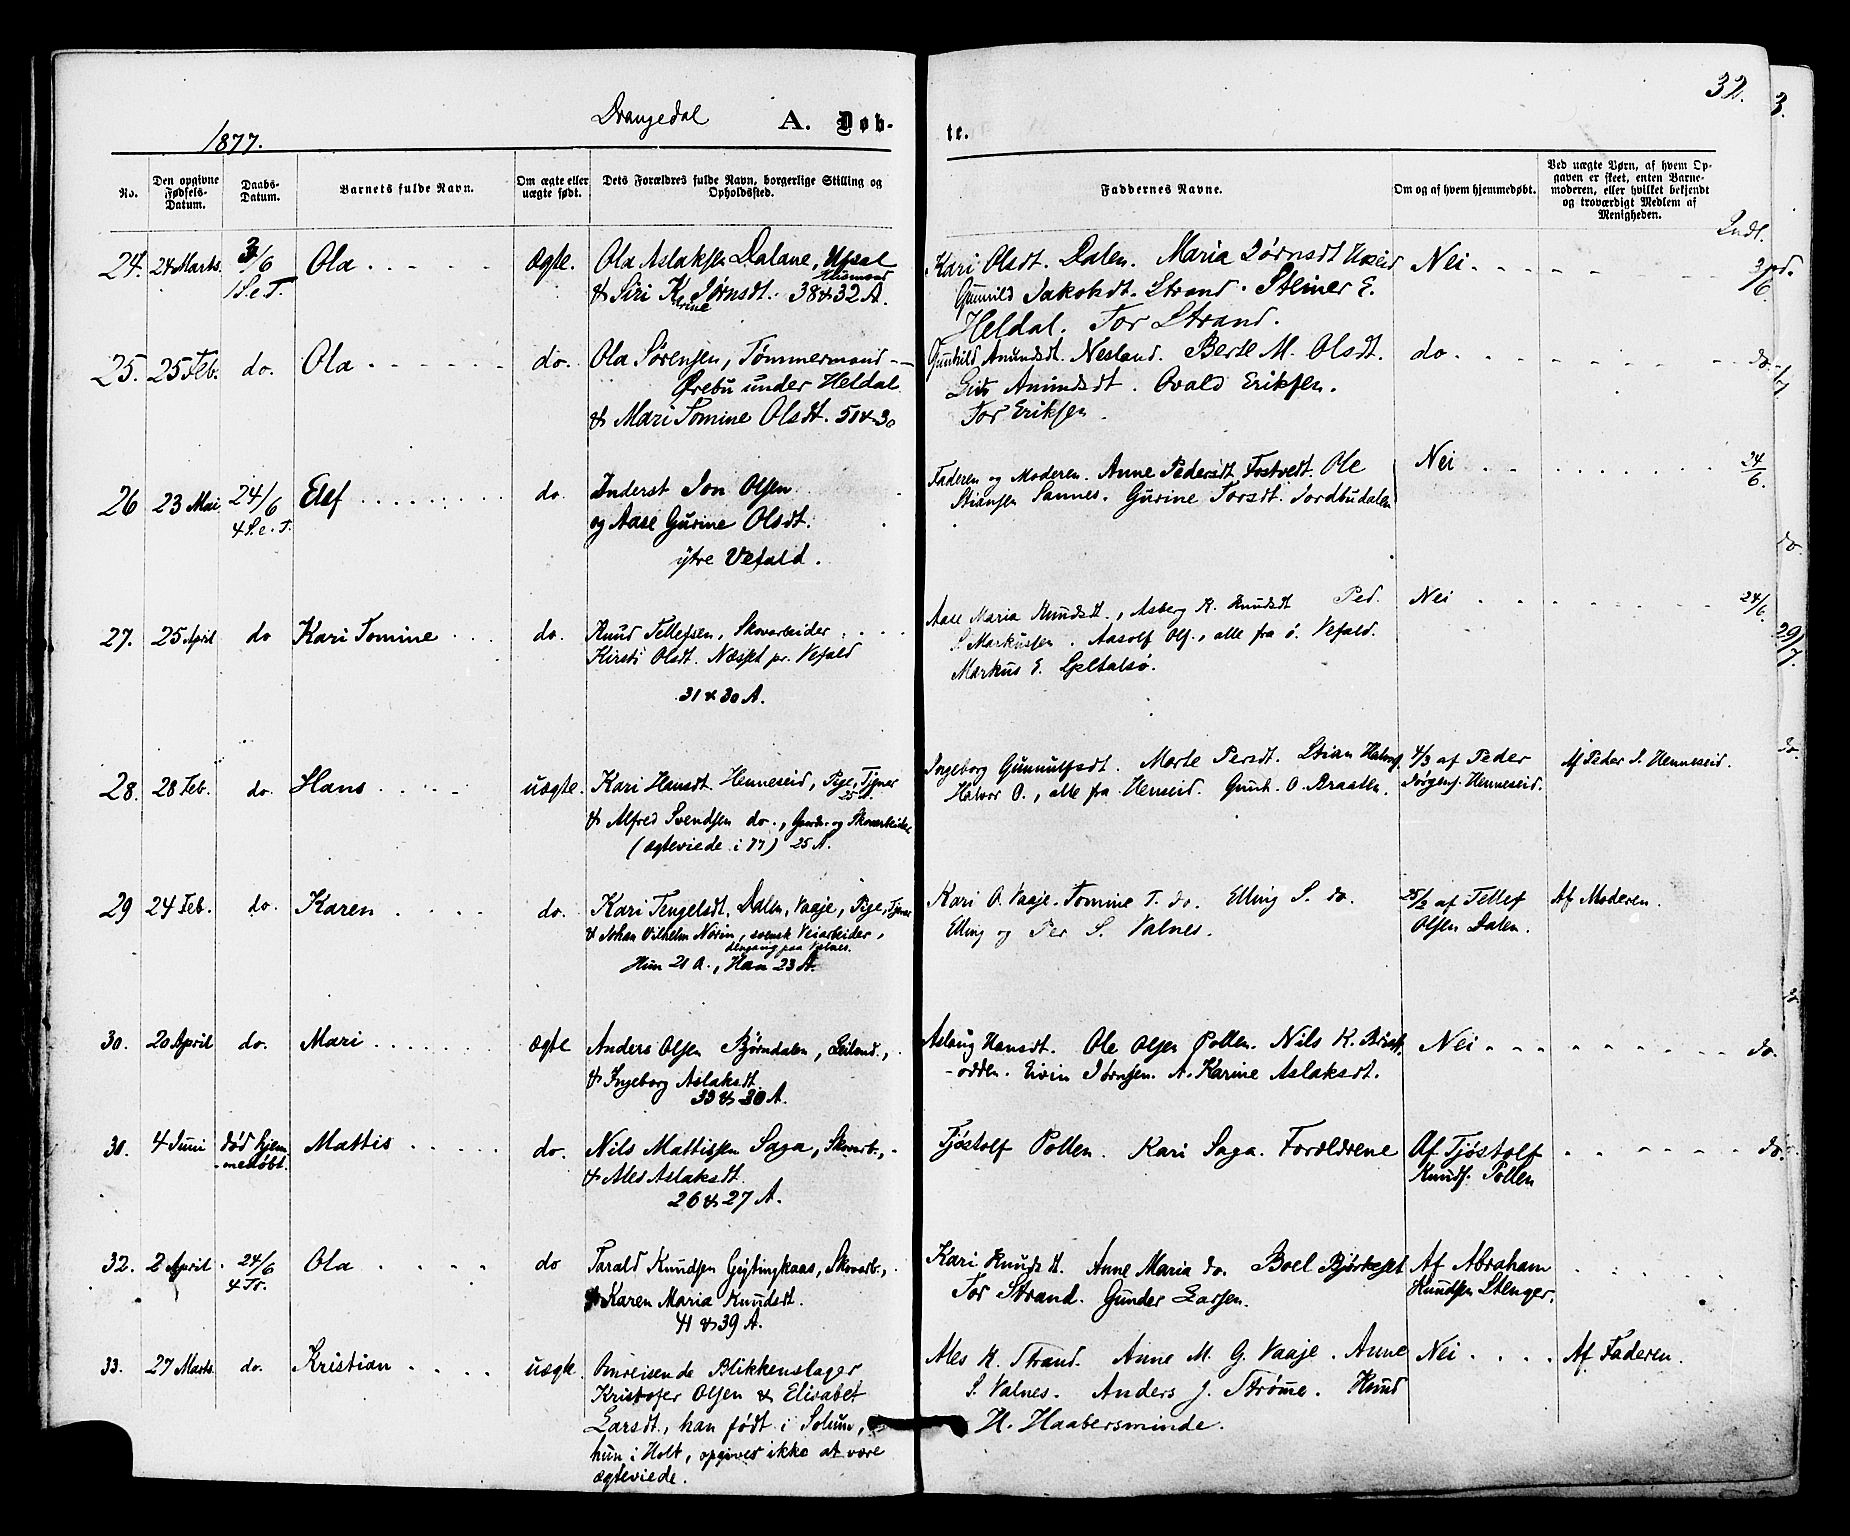 32.
Drangedal A. Døb-te.
1877.
No.
Den opgivne Fødsels-Datum.
Daabs-Datum.
Barnets fulde Navn.
Om ægte eller uægte født.
Dets Forældres fulde Navn, borgerlige Stilling og Opholdssted.
Faddernes Navne.
Om og af hvem hjemmedøbt.
Ved uægte Børn, af hvem Opgaven er skeet, enten Barnemoderen, eller hvilket bekjendt og troværdigt Medlem af Menigheden.
24. 24 Marts. 3/6 Ola ægte. Ola Aslaksen Dalane,
Husmand
& Siri Karine Jørnsdt. 38 & 32 A.
Kari Olsdt. Dalen. Maria Jørnsdt
Gunhild Jakobsdt. Strand. Steiner E.
Heldal. Tor Strand.
Nei 3/6
25. 25 Feb. do. Ola do. Ola Sørensen, Tømmermand
Ørebu under Heldal
& Mari Tomine Olsdt. 51 & 30
Gunhild Anundsdt. Nesland. Berte M. Olsdt.
Anundsdt. Ovald Eriksen.
Tor Eriksen.
do. do.
26 23 Mai 24/6 Elef do. Inderst Jon Olsen
4 S. e. T.
og Aase Gurine Olsdt.
ytre Vefald.
Faderen og Moderen. Anne Pedersdt. Tostvedt. Ole
Stiansen Sannes. Gurine Torsdt. Jordbudalen
Nei 24/6.
27. 25 April do Kari Tomine do. Knud Tellefsen, Skovarbeider
Kirsti Olsdt. Næsset pr. Vefald
31 & 30 A.
Aase Maria Knudsdt., Asberg K. Knudsdt Ped.
S. Markussen. Aasolf Ols., alle fra ø. Vefald.
Markus E.
Nei 24/6.
28. 28 Feb. do. Hans uægte. Kari Hansdt. Henneseid, Pige, Tjener
25 A.
& Alfred Svendsen do., Gaardm. og Skovarbeider
(ægteviede i 77) 25 A.
Ingeborg Gunnulfsdt. Marte Persdt. Stian Halvors.
Halvor O., alle fra Henseid. Gunh. O. Braaten.
4/3 af Peder
Jörgens. Henneseid.
Af Peder J. Henneseid.
29 24 Feb. do. Karen do. Kari Tengelsdt. Dalen, Vaaje, Pige, Tjener
& Johan Vilhelm Norin, svensk Veiarbeider,
dengang paa Valnes.
Hun 21 A., Han 23 A.
Kari O. Vaaje. Tomine T. do. Elling S. do.
Elling og Per S. Valnes.
25/2 af Tellef
Olsen Dalen.
Af Moderen.
30. 20 April do. Mari ægte Anders Olsen Bjørndalen, Leilend.,
& Ingeborg Aslaksdt.
33 & 30 A.
Aslaug Hansdt. Ole Olsen Pollen. Nils K.
-odden. Eivin Jørnsen. A. Karine Aslaksdt.
Nei do.
31. 4 Juni død hjem-
-medøbt. Mattis do. Nils Mattissen Saga, Skovarb.,
& Ales Aslaksdt.
26 & 27 A.
Tjøstolf Pollen. Kari Saga. Forældrene
Af Tjøstolf
Knuds. Pollen
do.
32. 2 April 24/6 Ola do Tarald Knudsen Geytingkaas, Skovarb.,
4 Tr.
& Karen Maria Knudsdt.
41 & 39 A.
Kari Knudsdt. Anne Maria do. Boel Bjørkeset
Tor Strand. Gunder Larsen.
Af Abraham
Knudsen Stenger.
33. 27 Marts. do. Kristian uægte. Omreisende Blikkenslager
Kristofer Olsen & Elisabet
Larsdt., han født i Solum,
hun i Holt, opgives ikke at være
ægteviede.
Ales K. Strand. Anne M. G. Vaaje. Anne
S. Valnes. Anders J. Strøme. Knud
H. Haabersminde.
Nei Af Faderen.